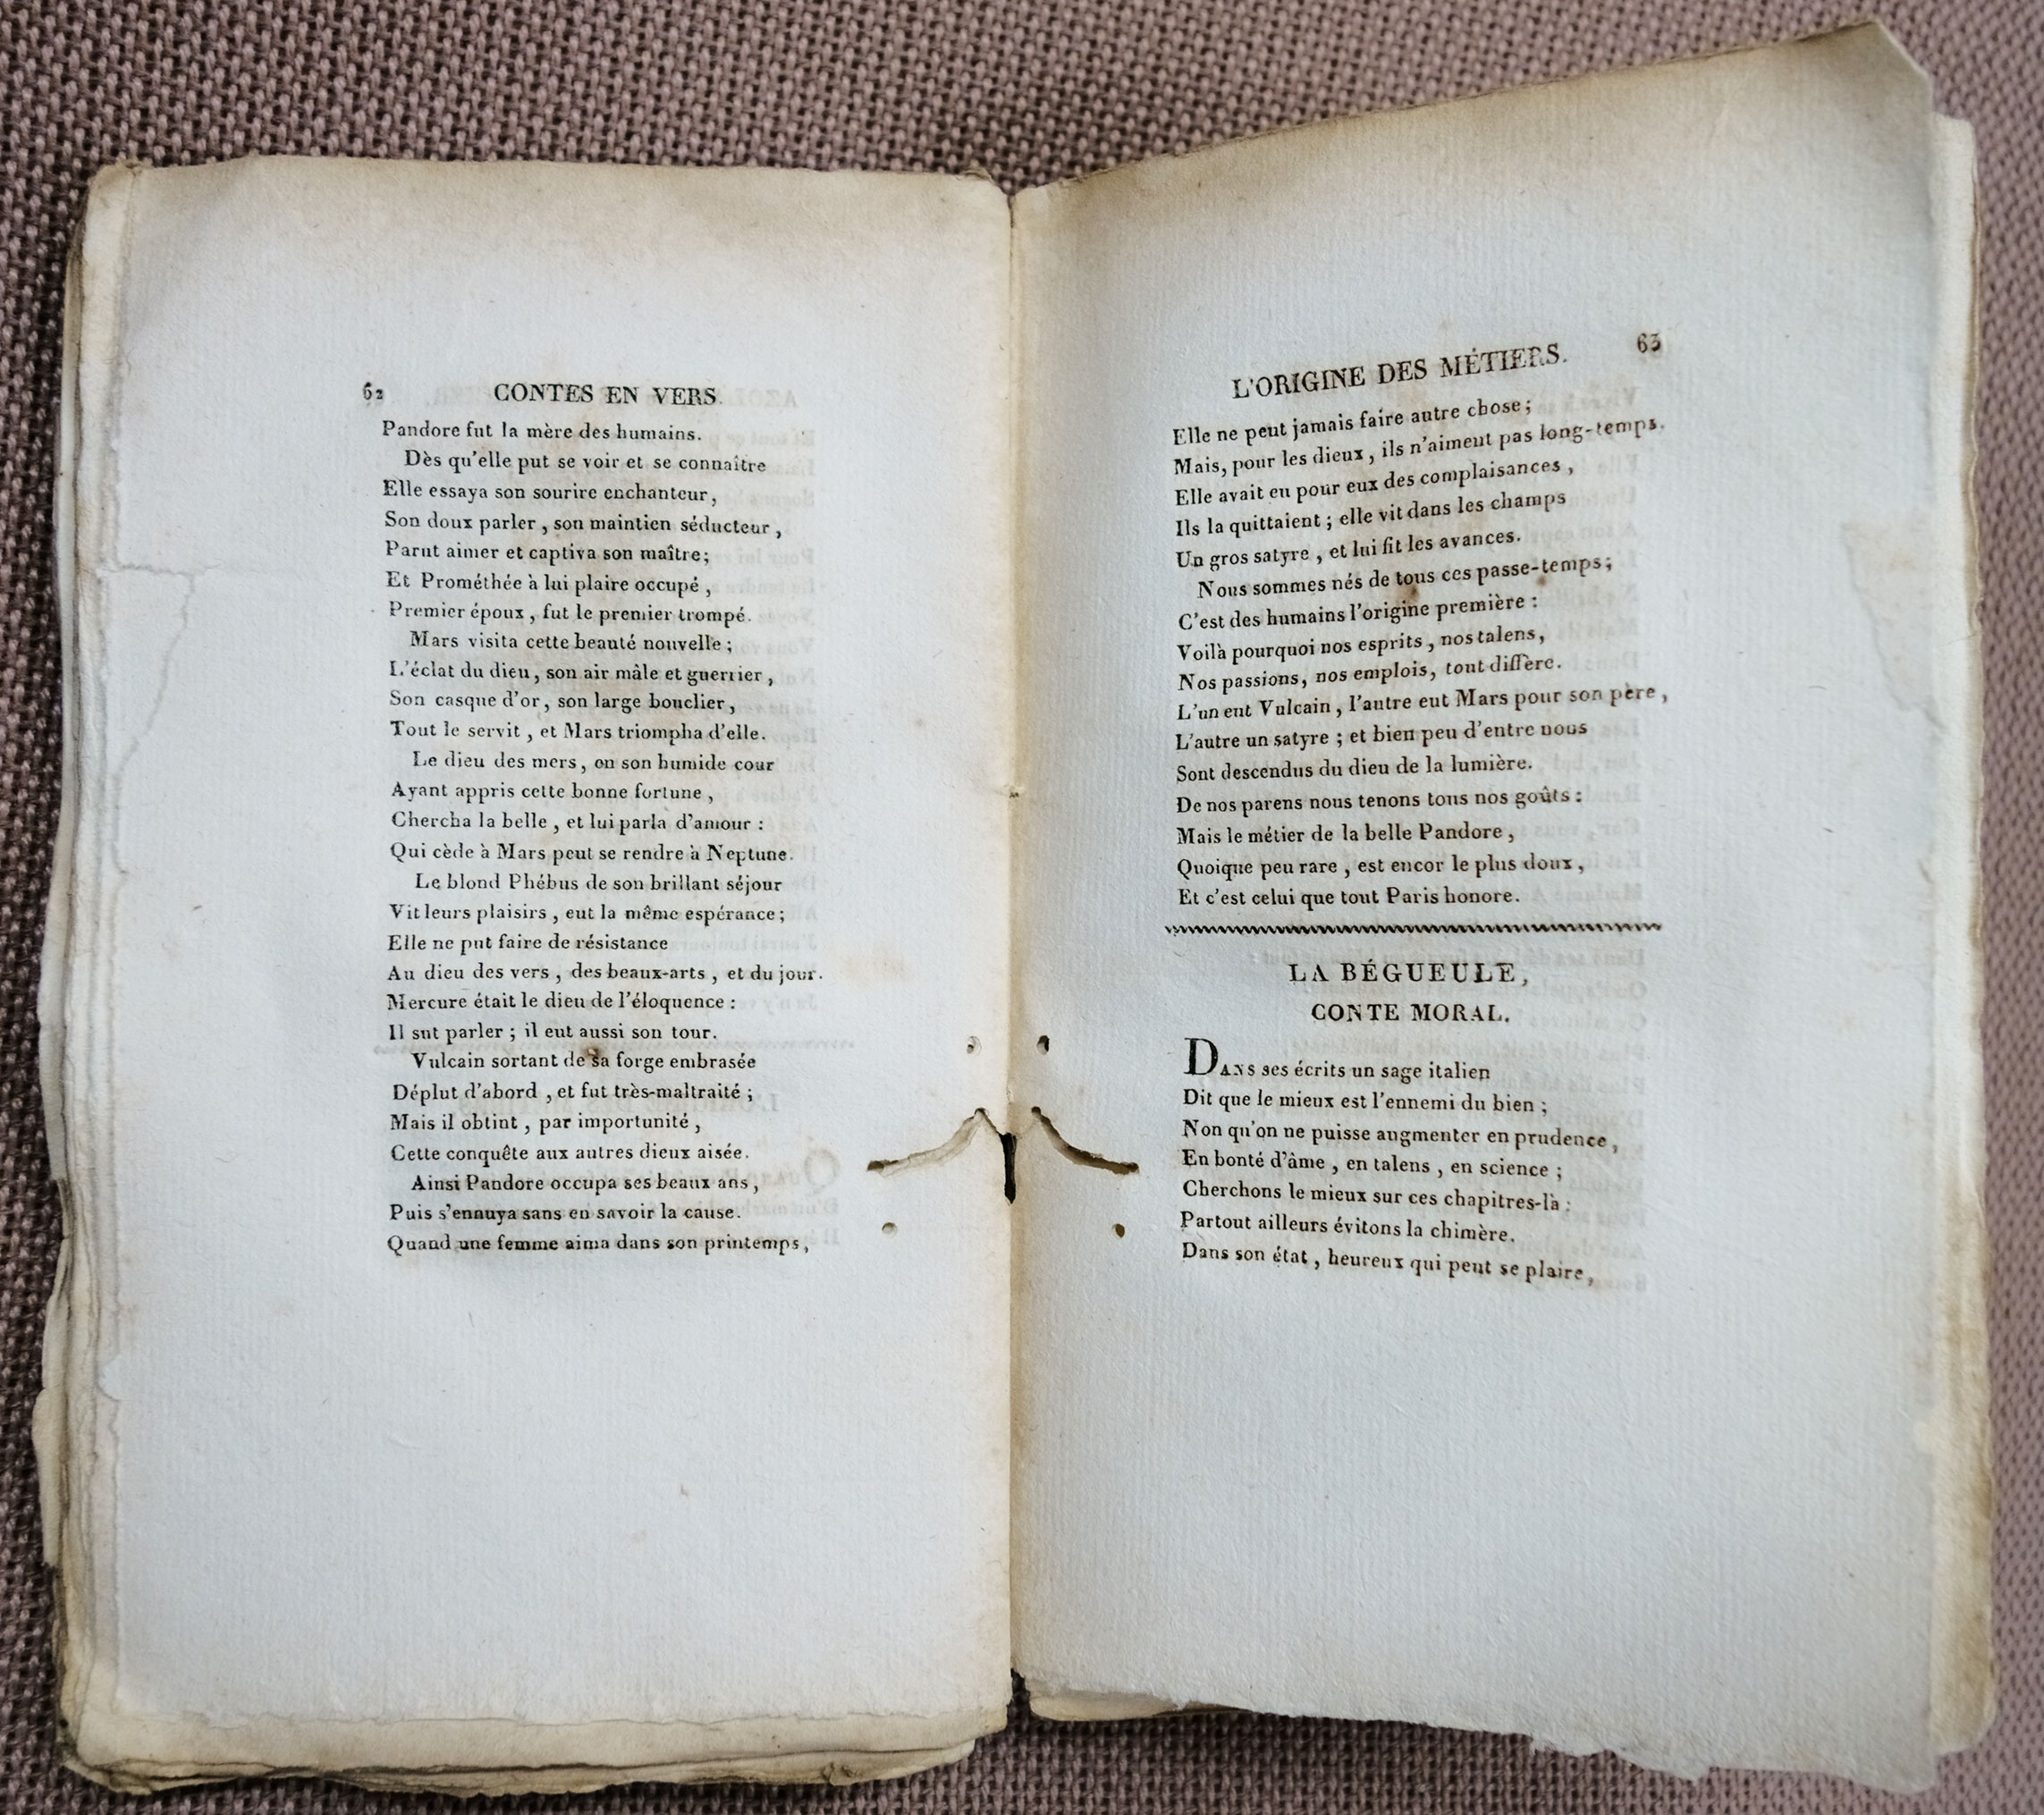 62 CONTES EN VERS.
Pandore fut la mère des humains.
Dès qu'elle put se voir et se connaître
Elle essaya son sourire enchanteur,
Son doux parler, son maintien séducteur,
Parut aimer et captiva son maître;
Et Prométhée à lui plaire occupé,
Premier époux, fut le premier trompé.
Mars visita cette beauté nouvelle;
L'éclat du dieu, son air mâle et guerrier,
Son casque d'or, son large bouclier,
Tout le servit, et Mars triompha d'elle.
Le dieu des mers, en son humide cour
Ayant appris cette bonne fortune,
Chercha la belle, et lui parla d'amour:
Qui cède à Mars peut se rendre à Neptune.
Le blond Phébus de son brillant séjour
Vit leurs plaisirs, eut la même espérance;
Elle ne put faire de résistance
Au dieu des vers, des beaux-arts, et du jour.
Mercure était le dieu de l'éloquence:
Il sut parler; il eut aussi son tour.
Vulcain sortant de sa forge embrasée
Déplut d'abord, et fut très-maltraité;
Mais il obtint, par importunité,
Cette conquête aux autres dieux aisée.
Ainsi Pandore occupa ses beaux ans,
Puis s'ennuya sans en savoir la cause.
Quand une femme aima dans son printemps,
L'ORIGINE DES MÉTIERS. 63
Elle ne peut jamais faire autre chose;
Mais, pour les dieux, ils n'aiment pas long-temps.
Elle avait eu pour eux des complaisances,
Ils la quittaient; elle vit dans les champs
Un gros satyre, et lui fit les avances.
Nous sommes nés de tous ces passe-temps;
C'est des humains l'origine première:
Voilà pourquoi nos esprits, nos talens,
Nos passions, nos emplois, tout diffère.
L'un eut Vulcain, l'autre eut Mars pour son père,
L'autre un satyre; et bien peu d'entre nous
Sont descendus du dieu de la lumière.
De nos parens nous tenons tous nos goûts:
Mais le métier de la belle Pandore,
Quoique peu rare, est encor le plus doux,
Et c'est celui que tout Paris honore.
LA BÉGUEULE,
CONTE MORAL.
DANS ses écrits un sage italien
Dit que le mieux est l'ennemi du bien;
Non qu'on ne puisse augmenter en prudence,
En bonté d'âme, en talens, en science;
Cherchons le mieux sur ces chapitres-là:
Partout ailleurs évitons la chimère.
Dans son état, heureux qui peut se plaire,